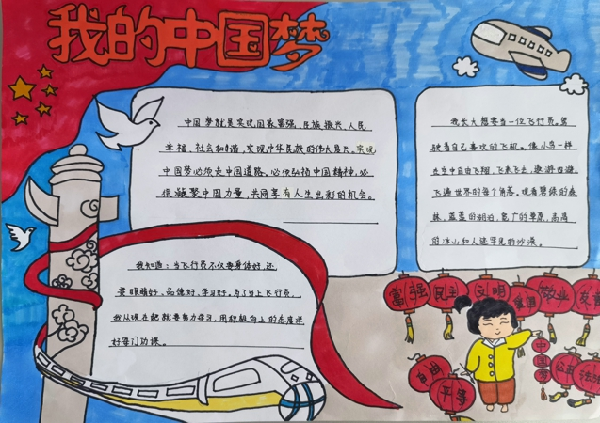 我的中国梦
中国梦就是实现国家富强、民族振兴、人民
幸福、社会和谐，实现中华民族的伟大复兴。实现
中国梦必须走中国道路、必须弘扬中国精神、必
须凝聚中国力量，共同享有人生出彩的机会。
我长大想要当一位飞行员。驾
驶着自己喜欢的飞机。像小鸟一样
在空中自由飞翔，飞来飞去，遨游
遍世界的每个角落。观看碧绿的森
林，蓝蓝的湖泊，宽广的草原，高高
的冰山和人迹罕见的沙漠。
我知道：当飞行员不仅要身体好，还
要眼睛好、品德好、学习好。为了当上飞行员，
我从现在起就要努力学习，用积极向上的态度进
好每门功课。
富强
民主
文明
和谐
敬业
友善
自由
平等
中国梦
公正
法治